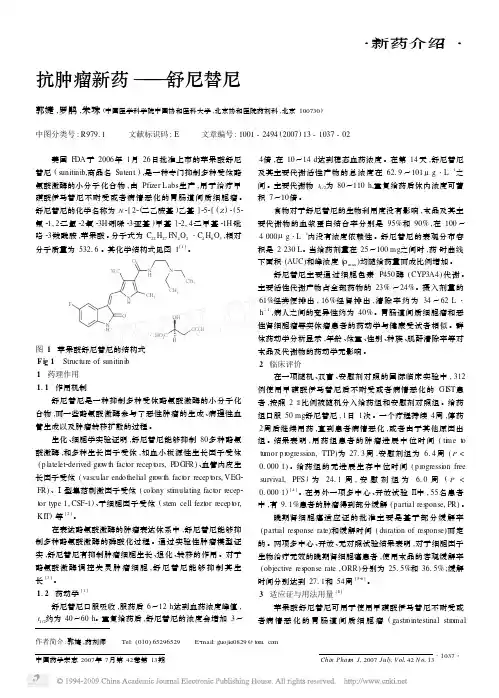 ·新药介绍·
抗肿瘤新药——舒尼替尼
郭婕,罗鹃,朱珠(中国医学科学院中国协和医科大学,北京协和医院药剂科,北京 100730)
中图分类号:R979.1 文献标识码:E 文章编号:1001-2494(2007)13-1037-02
美国 FDA于 2006年 1月 26日批准上市的苹果酸舒尼
替尼 (sunitinib,商品名 Sutent),是一种专门抑制多种受体酪
氨酸激酶的小分子化合物,由 Pfizer Labs生产,用于治疗甲
磺酸伊马替尼不耐受或者病情恶化的胃肠道间质细胞瘤。
舒尼替尼的化学名称为 N-[2-(二乙胺基)乙基]-5-[(z)-(5-
氟-1,2二氢-2氧-3H吲哚-3亚基)甲基]-2,4二甲基-1H-吡
咯-3羧酰胺,苹果酸。分子式为 C22H27FN4O2·C4H6O5,相对
分子质量为 532.6。其化学结构式见图 1[1]。
图 1 苹果酸舒尼替尼的结构式
Fig 1 Structure of sunitinib
1 药理作用
1.1 作用机制
舒尼替尼是一种抑制多种受体酪氨酸激酶的小分子化
合物,而一些酪氨酸激酶参与了恶性肿瘤的生成、病理性血
管生成以及肿瘤转移扩散的过程。
生化、细胞学实验证明,舒尼替尼能够抑制 80多种酪氨
酸激酶,和多种生长因子受体,如血小板源性生长因子受体
(platelet-derived growth factor receptors, PDGFR)、血管内皮生
长因子受体 (vascular endothelial growth factor receptors,VEG-
FR)、I型集药刺激因子受体 (colony stimulating factor recep-
tor type 1, CSF-1)、干细胞因子受体 (stem cell feztor receptor,
KIT)等[2]。
在表达酪氨酸激酶的肿瘤表达体系中,舒尼替尼能够抑
制多种酪氨酸激酶的磷酸化过程。通过实验性肿瘤模型证
实,舒尼替尼有抑制肿瘤细胞生长、退化、转移的作用。对于
酪氨酸激酶调控失灵肿瘤细胞,舒尼替尼能够抑制其生
长[3]。
1.2 药动学[1]
舒尼替尼口服吸收,服药后 6~12 h达到血药浓度峰值,
t1/2约为 40~60 h。重复给药后,舒尼替尼的浓度会增加 3~
4倍,在 10~14 d达到稳态血药浓度。在第 14天,舒尼替尼
及其主要代谢活性产物的总浓度在 62.9~101μg·L-1之
间。主要代谢物 t1/2为 80~110 h,重复给药后体内浓度可蓄
积 7~10倍。
食物对于舒尼替尼的生物利用度没有影响,本品及其主
要代谢物的血浆蛋白结合率分别是 95%和 90%,在 100~
4 000μg·L-1内没有浓度依赖性。舒尼替尼的表观分布容
积是 2 230 L。当给药剂量在 25~100 mg之间时,药-时曲线
下面积 (AUC)和峰浓度 (ρmax)均随给药量而成比例增加。
舒尼替尼主要通过细胞色素 P450酶 (CYP3A4)代谢。
主要活性代谢产物占全部药物的 23% ~24%。摄入剂量的
61%经粪便排出,16%经肾排出,清除率约为 34~62 L·
h-1,病人之间的变异性约为 40%。胃肠道间质细胞瘤和恶
性肾细胞瘤等实体瘤患者的药动学与健康受试者相似。群
体药动学分析显示,年龄、体重、性别、种族、肌酐清除率等对
本品及代谢物的药动学无影响。
2 临床评价
在一项随机、双盲、安慰剂对照的国际临床实验中,312
例使用甲磺酸伊马替尼后不耐受或者病情恶化的 GIST患
者,按照 2∶1比例被随机分入给药组和安慰剂对照组。给药
组口服 50 mg舒尼替尼,1日 1次。一个疗程持续 4周,停药
2周后继续用药,直到患者病情恶化,或者由于其他原因出
组。结果表明,用药组患者的肿瘤进展中位时间 (time to
tumor progression, TTP)为 27.3周,安慰剂为 6.4周 (P <
0.000 1)。给药组的无进展生存中位时间 (progression free
survival, PFS)为 24.1周,安慰剂为 6.0周 (P <
0.000 1)[4]。在另外一项多中心、开放试验 Ⅱ中,55名患者
中,有 9.1%患者的肿瘤得到部分缓解 (partial response, PR)。
晚期肾细胞癌适应证的批准主要是基于部分缓解率
(partial response rate)和缓解时间 (duration of response)而定
的。两项多中心、开放、无对照试验结果表明,对于细胞因子
生物治疗无效的晚期肾细胞癌患者,使用本品的客观缓解率
(objective response rate ,ORR)分别为 25.5%和 36.5%;缓解
时间分别达到 27.1和 54周[5-6]。
3 适应证与用法用量[6]
苹果酸舒尼替尼可用于使用甲磺酸伊马替尼不耐受或
者病情恶化的胃肠道间质细胞瘤 (gastrointestinal stromal
作者简介:郭婕,药剂师 Tel: (010) 65296529 E-mail: guojie0829@tom.com
中国药学杂志 2007年 7月第 42卷第 13期
Chin Pharm J, 2007 July, Vol. 42 No. 13
·1037·
© 1994-2009 China Academic Journal Electronic Publishing House. All rights reserved. http://www.cnki.net